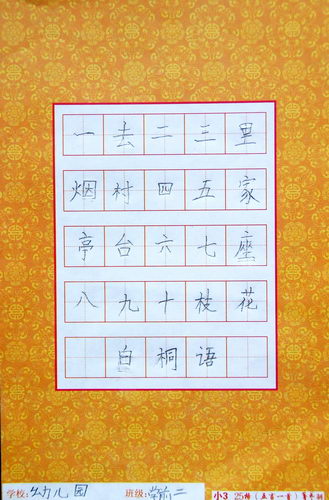 一去二三里
烟村四五家
亭台六七座
八九十枝花
白桐语
学校:幼儿园 班级:学前二 小3 25格(五言一首)